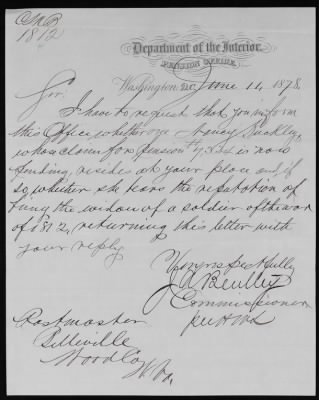 1812
Department of the Interior,
PENSION OFFICE,
Washington, D.C., June 11, 1878.
Sir:
I have to request that you inform
this Office whether one Nancy
whose claim for pension is now
pending, resides at your place and, if
so, whether she bears the reputation of
being the widow of a soldier of the war
of 1812, returning this letter with
your reply
Very respectfully
J A Bentley
Commissioner
Postmaster
Belleville
Wood Co
W Va,